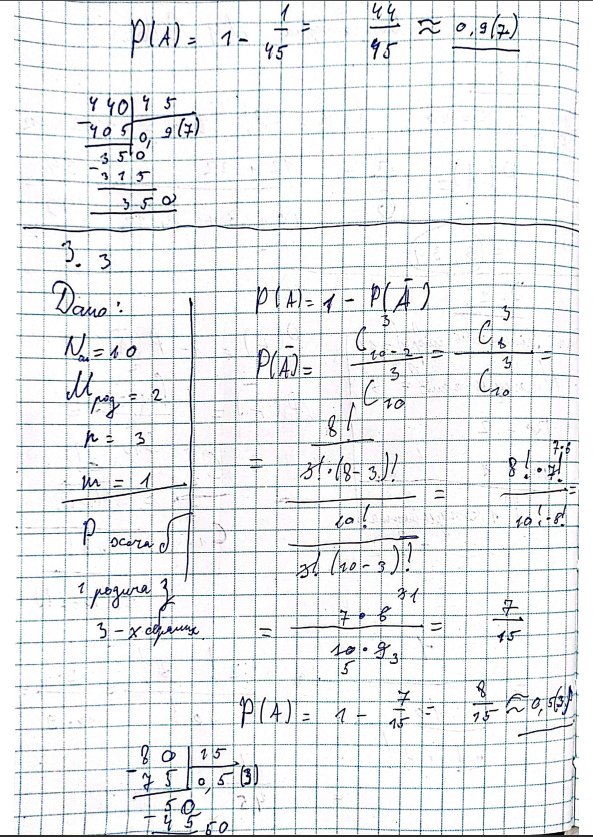 P(A) = 1 - 1/45 = 44/45 ≈ 0,9(7)
440 | 45
- 405 | 0,9(7)
350
- 315
350
3. 3
Дано:
N = 10
M = 2
n = 3
m = 1
P
1 родина з
3-х
P(A) = 1 - P(Ā)
P(Ā) = C³₁₀₋₂ / C³₁₀ = C³₈ / C³₁₀ =
= (8! / (3!·(8-3)!)) / (10! / (3!(10-3)!)) = 8!·7! / 10!·
= 7·8 / 10·9 = 7/15
P(A) = 1 - 7/15 = 8/15 ≈ 0,5(3)
80 | 15
- 75 | 0,5(3)
50
- 45
50